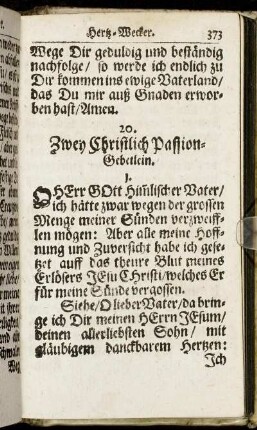 Hertz-Wecker. 373
Wege Dir geduldig und beständig
nachfolge / so werde ich endlich zu
Dir kommen ins ewige Vaterland /
das Du mir auß Gnaden erwor-
ben hast / Amen.
20.
Zwey Christlich Passion-
Gebetlein.
1.
O HErr GOtt Himlischer Vater /
ich hätte zwar wegen der grossen
Menge meiner Sünden verzweiff-
len mögen: Aber alle meine Hoff-
nung und Zuversicht habe ich gese-
tzet auff das theure Blut meines
Erlösers JEsu Christi / welches Er
für meine Sünde vergossen.
Siehe / O lieber Vater / da brin-
ge ich Dir meinen HErrn JEsum /
deinen allerliebsten Sohn / mit
gläubigem danckbarem Hertzen:
Jch